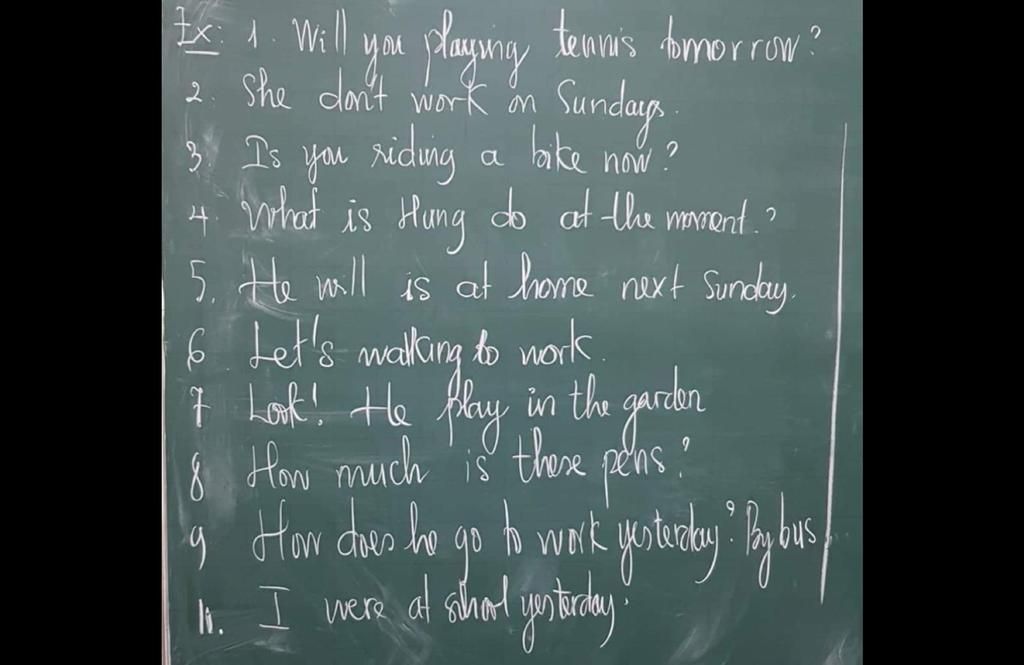 Ex: 1. Will you playing tennis tomorrow?
2. She don't work on Sundays.
3. Is you riding a bike now?
4. What is Hung do at the moment?
5. He will is at home next Sunday.
6 Let's walking to work.
7 Look! He play in the garden
8 How much is these pens?
9 How does he go to work yesterday? By bus
10. I were at school yesterday.